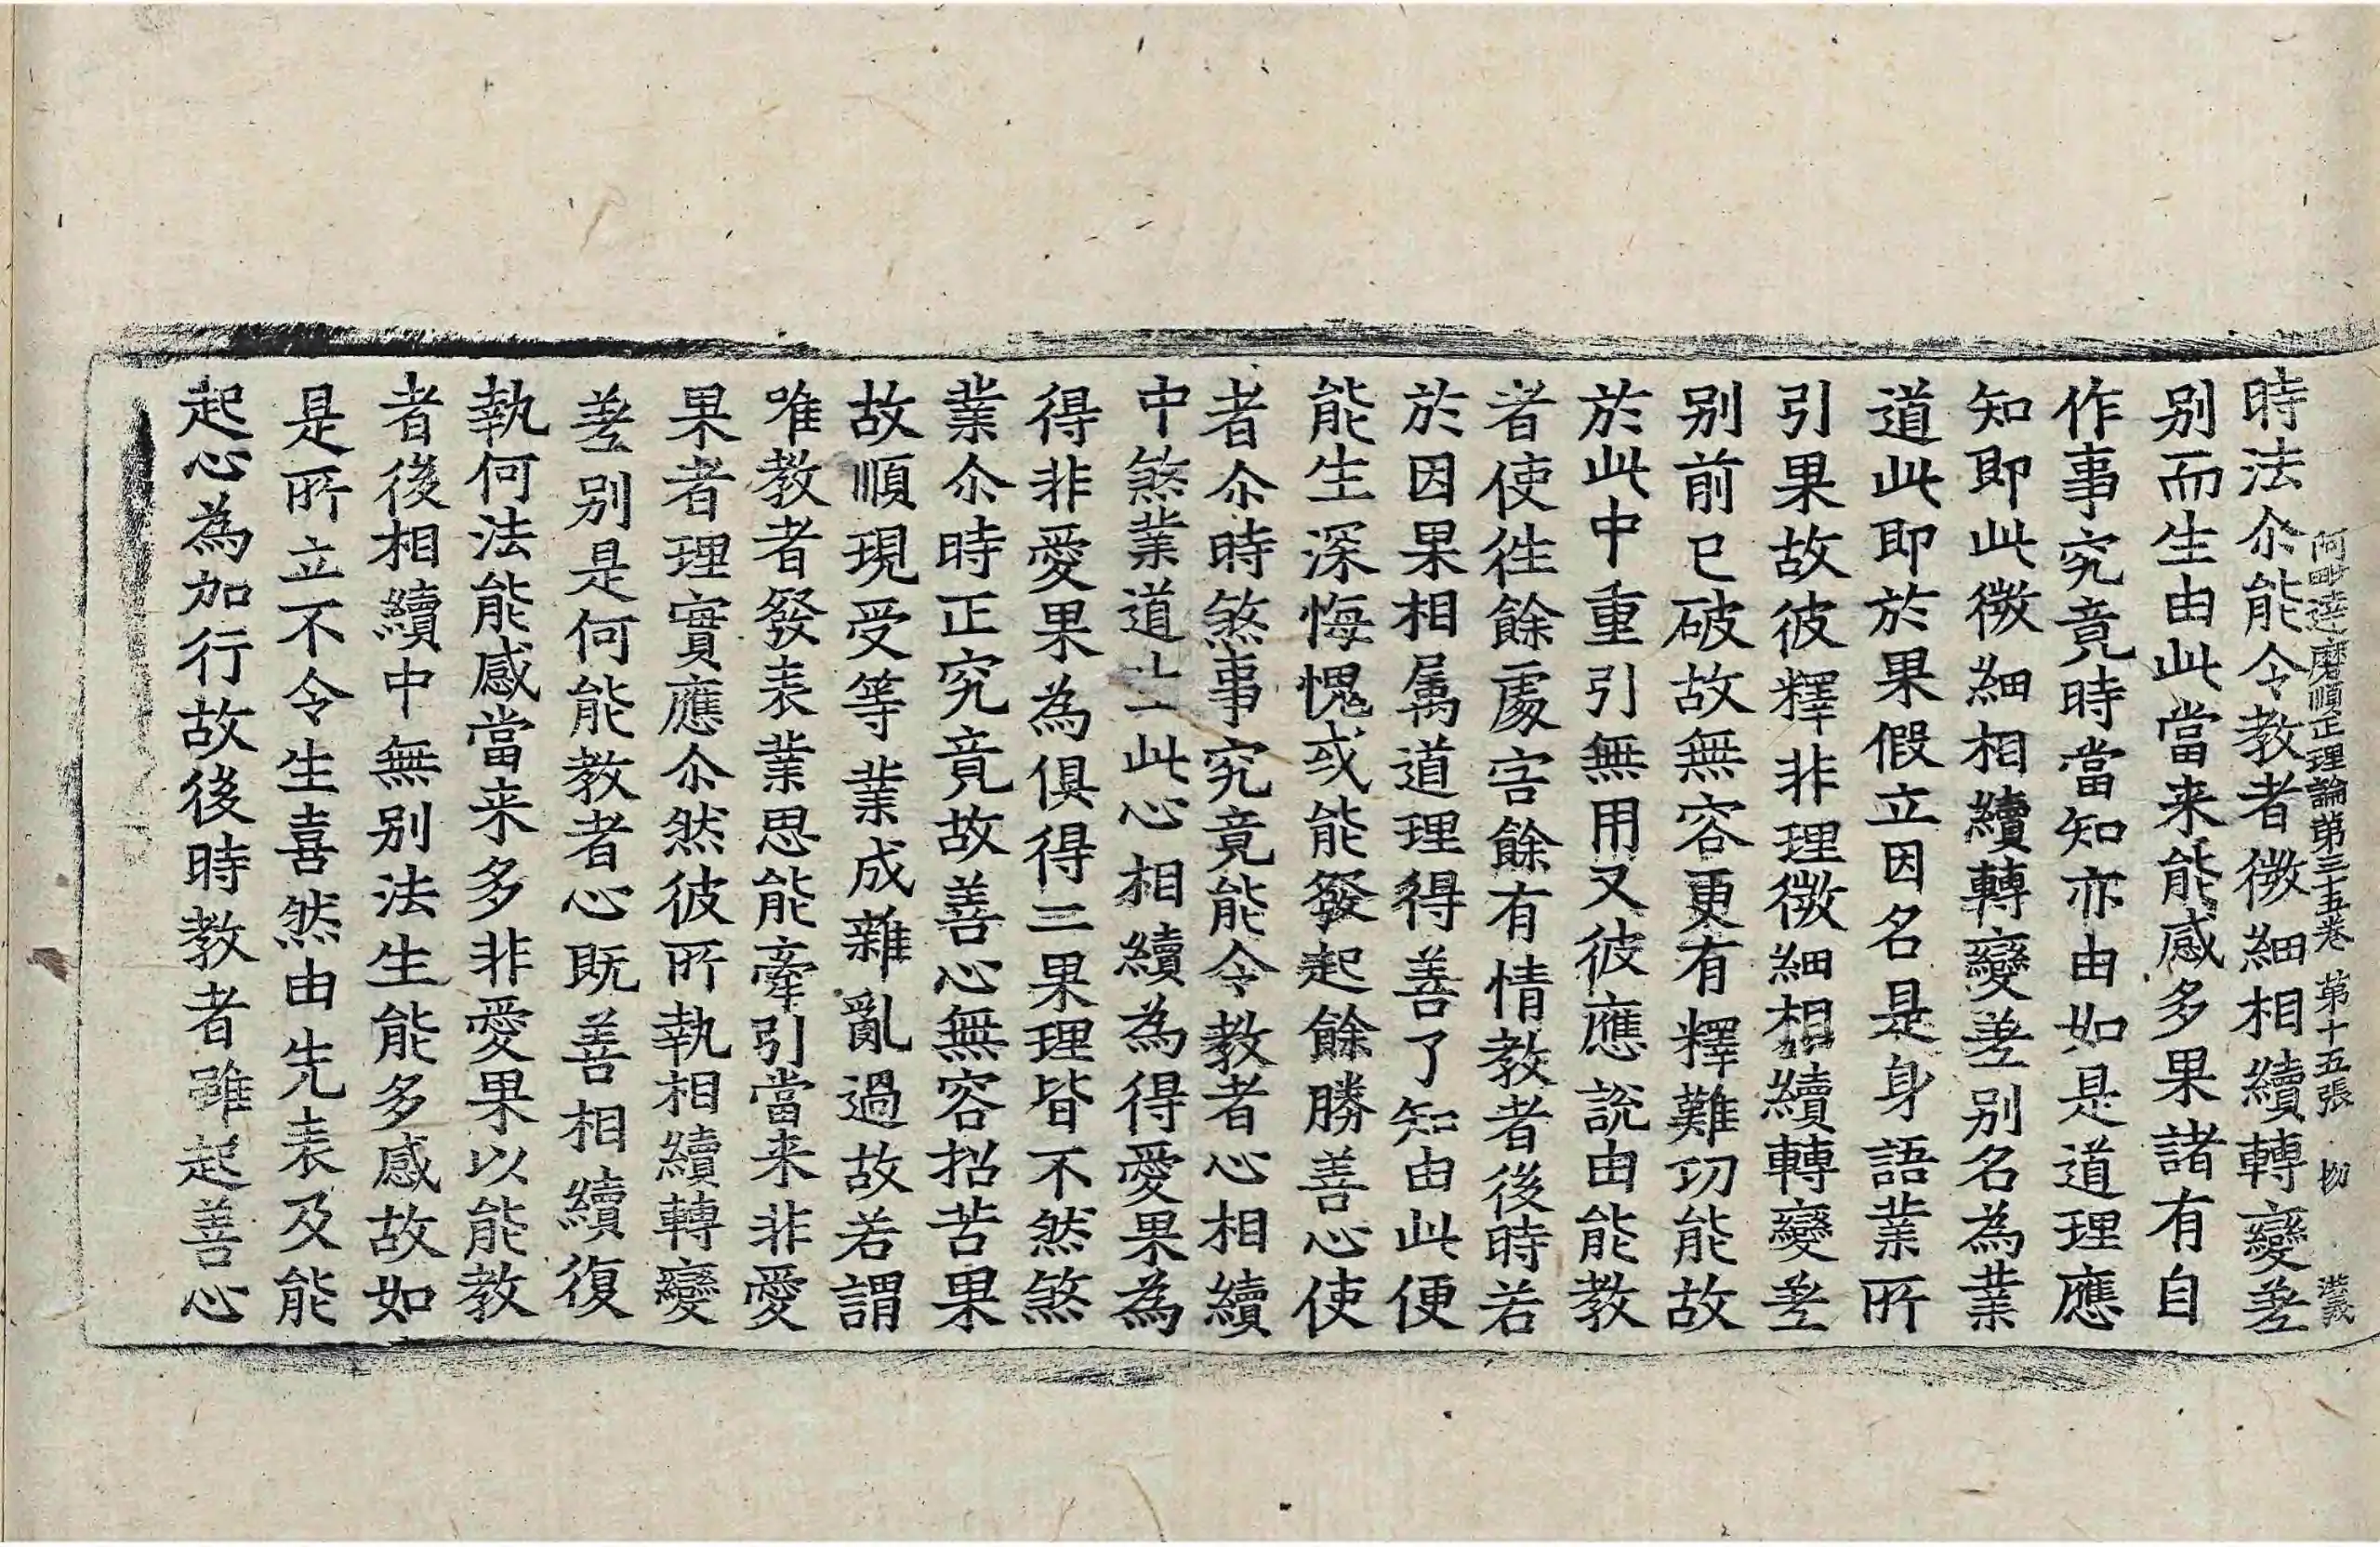 阿毗達磨順正理論第三十五卷 第十五張 切
時法尒能令教者微細相續轉變差
别而生由此當来能感多果諸有自
作事究竟時當知亦由如是道理應
知即此微細相續轉變差别名為業
道此即於果假立因名是身語業所
引果故彼釋非理微細相續轉變差
别前已破故無容更有釋難功能故
於此中重引無用又彼應説由能教
者使往餘處害餘有情教者後時若
於因果相属道理得善了知由此便
能生深悔愧或能發起餘勝善心使
者尒時煞事究竟能令教者心相續
中煞業道生此心相續為得愛果為
得非愛果為俱得三果理皆不然煞
業尒時正究竟故善心無容招苦果
故順現受等業成雜亂過故若謂
唯教者發表業思能牽引當来非愛
果者理實應尒然彼所執相續轉變
差别是何能教者心既善相續復
執何法能感當来多非愛果以能教
者後相續中無别法生能多感故如
是所立不令生喜然由先表及能
起心為加行故後時教者雖起善心